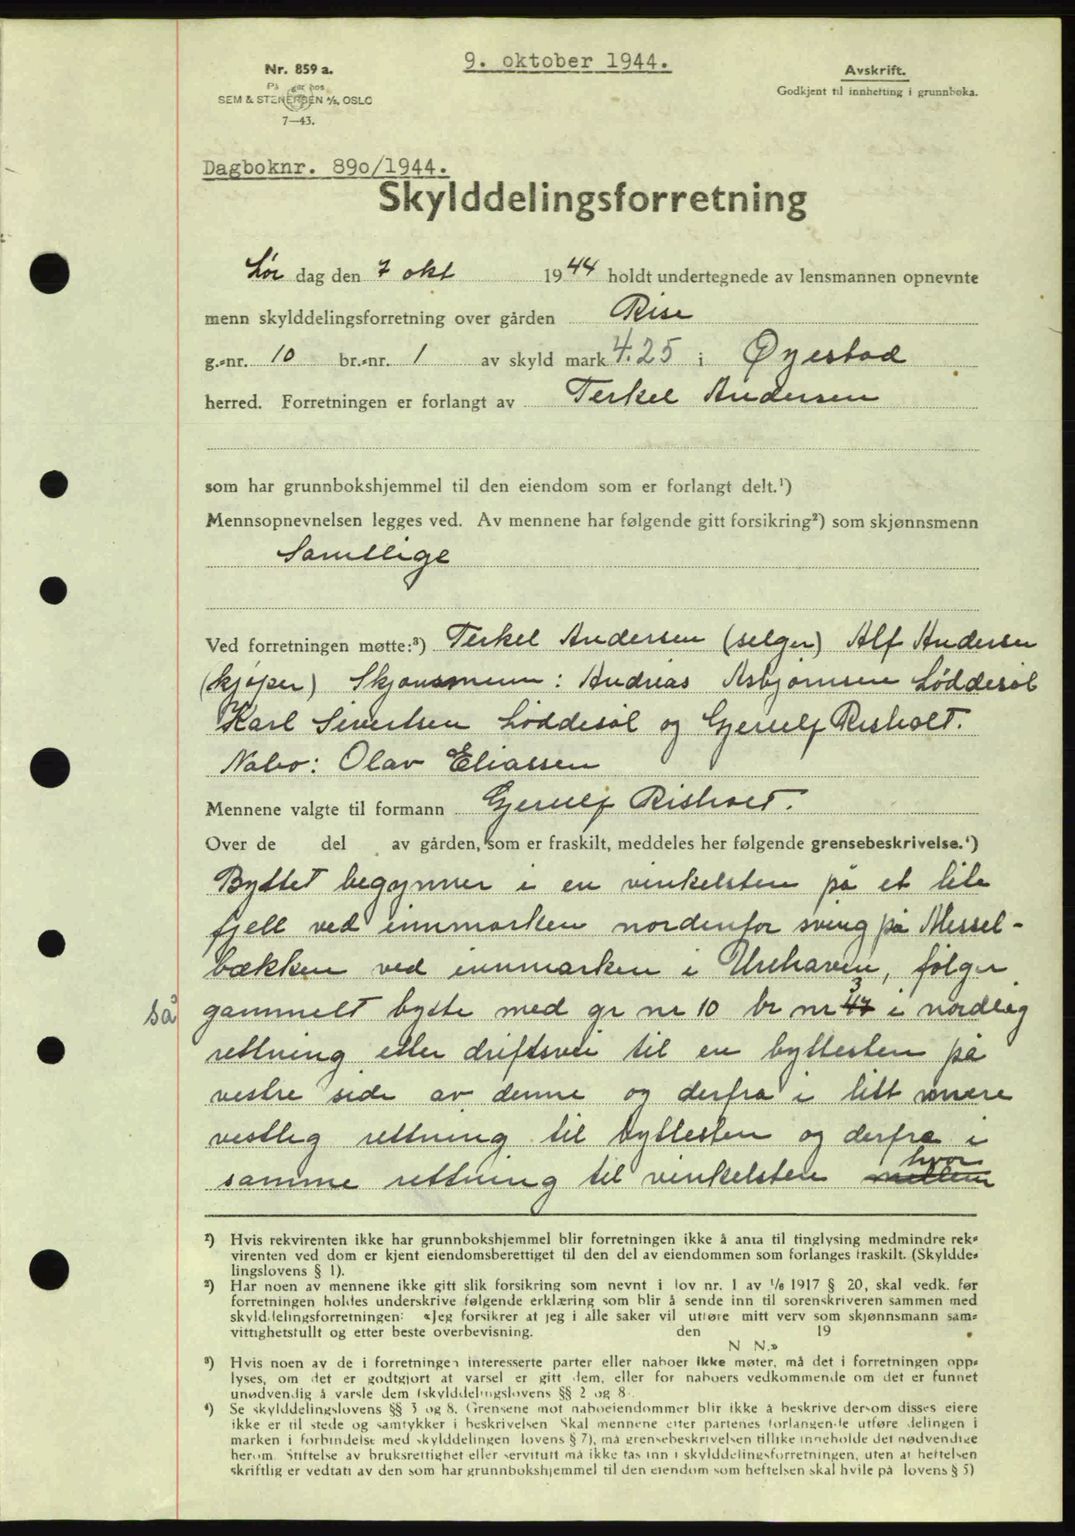 9. oktober 1944.
Nr. 859 a.
På lager hos
SEM & STENERSEN A/S, OSLO
7—43.
Avskrift.
Godkjent til innhefting i grunnboka.
Dagboknr. 890/1944.
Skylddelingsforretning
Lør dag den 7 okt 1944 holdt undertegnede av lensmannen opnevnte
menn skylddelingsforretning over gården Rise
g.-nr. 10 br.-nr. 1 av skyld mark 4.25 i Øyestad
herred. Forretningen er forlangt av Terkel Andersen
som har grunnbokshjemmel til den eiendom som er forlangt delt.¹)
Mennsopnevnelsen legges ved. Av mennene har følgende gitt forsikring²) som skjønnsmenn
Samtlige
Ved forretningen møtte:³) Terkel Andersen (selger) Alf Andersen
(kjøper) Skjønsmenn: Andreas Asbjørnsen Løddesøl
Karl Sivertsen Løddesøl og Gjerulf Risholt.
Nabo: Olav Eliassen
Mennene valgte til formann Gjerulf Risholt.
Over de del av gården, som er fraskilt, meddeles her følgende grensebeskrivelse.⁴)
Byttet begynner i en vinkelsten på et lite
fjell ved innmarken nordenfor sving på Messel-
bækken ved innmarken i Urehaven, følger
så gammelt bytte med gr nr 10 br nr 47 3 i nordlig
rettning etter driftsvei til en byttesten på
vestre side av denne og derfra i litt mere
vestlig rettning til byttesten og derfra i
samme rettning til vinkelsten mellem hvor
¹) Hvis rekvirenten ikke har grunnbokshjemmel blir forretningen ikke å anta til tinglysing medmindre rek-
virenten ved dom er kjent eiendomsberettiget til den del av eiendommen som forlanges fraskilt. (Skyldde-
lingslovens § 1).
²) Har noen av mennene ikke gitt slik forsikring som nevnt i lov nr. 1 av 1/6 1917 § 20, skal vedk. før
forretningen holdes underskrive følgende erklæring som blir å sende inn til sorenskriveren sammen med
skylddelingsforretningen: «Jeg forsikrer at jeg i alle saker vil utføre mitt verv som skjønnsmann sam-
vittighetsfullt og etter beste overbevisning. den 19 .
N N.»
³) Hvis noen av de i forretningen interesserte parter eller naboer ikke møter, må det i forretningen opp-
lyses, om det er godtgjort at varsel er gitt dem, eller for naboers vedkommende om det er funnet
unødvendig å varsle dem (skylddelingslovens §§ 2 og 8.
⁴) Se skylddelingslovens §§ 3 og 8. Grensene mot naboeiendommer blir ikke å beskrive dersom disses eiere
ikke er til stede og samtykker i beskrivelsen Skal mennene etter partenes forlangende utføre delingen i
marken i forbindelse med skylddelingen lovens § 7), må grensebeskrivelsen tillike inneholde det nødvendige
herom. Stiftelse av bruksrettighet eller servitutt må ikke tas inn i skylddelingsforretningen, uten at heftelsen
skriftlig er vedtatt av den som har grunnbokshjemmel til den eiendom som heftelsen skal hvile på lovens § 5)